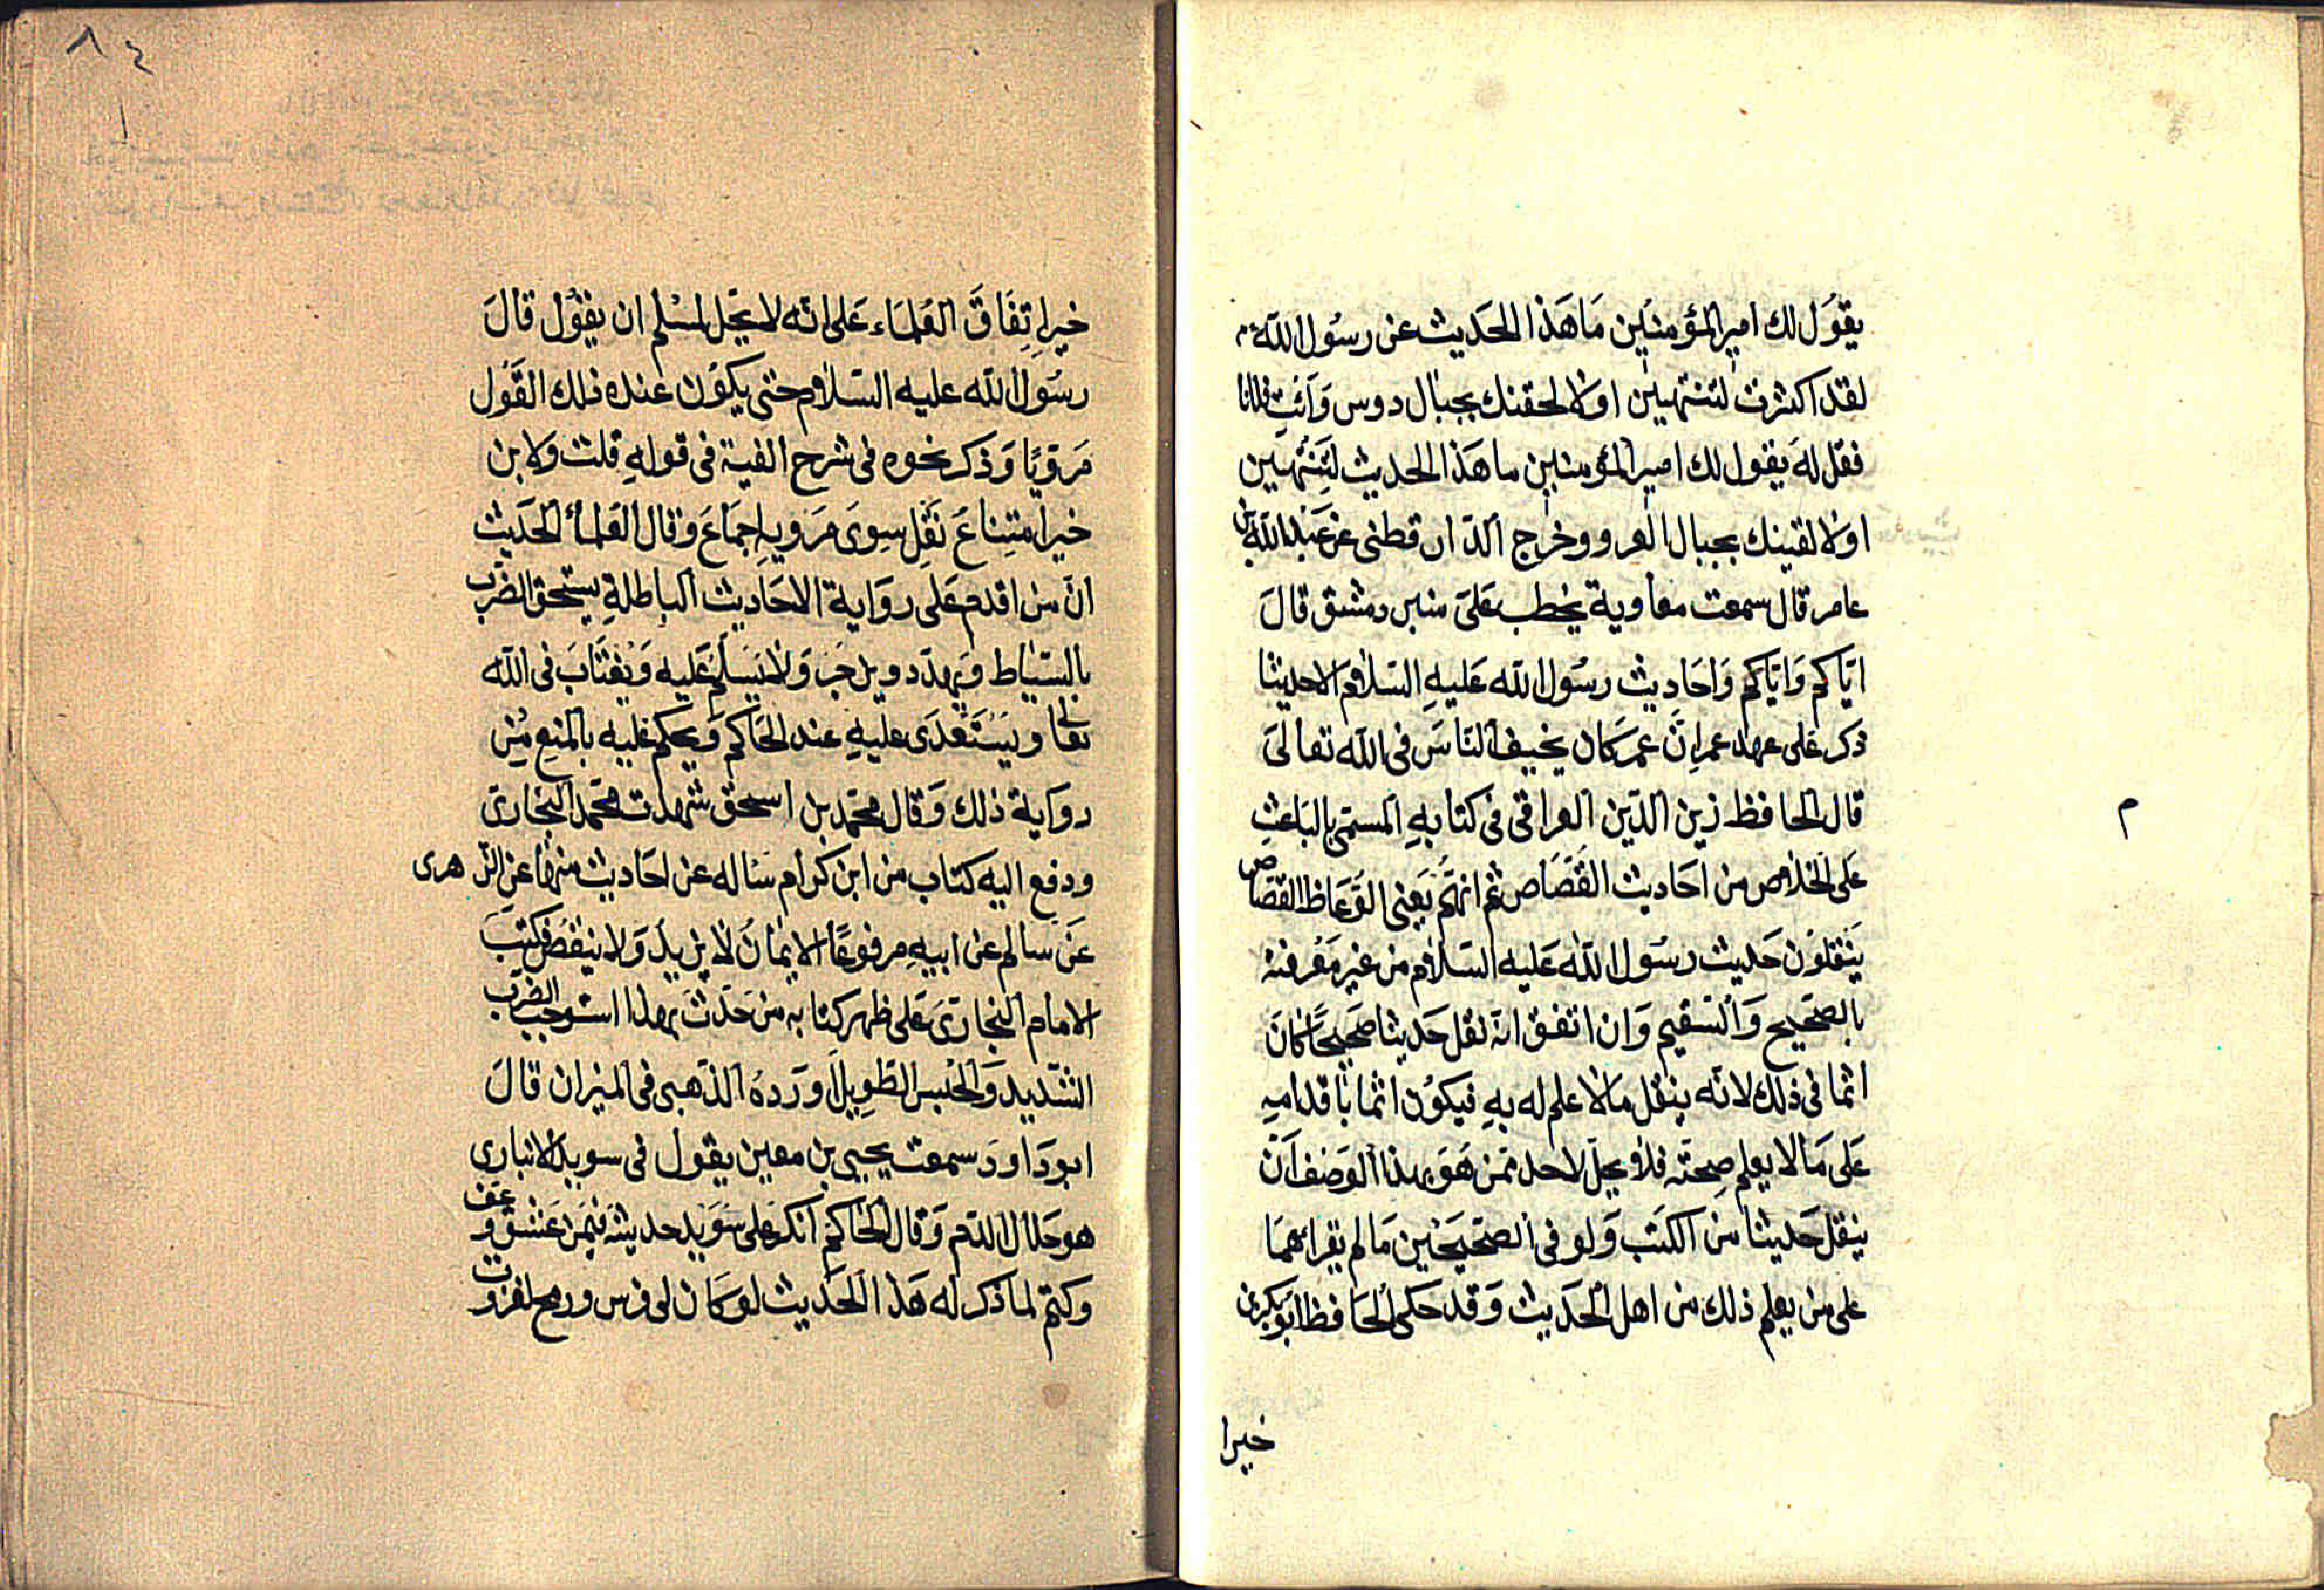 يقول لك امير المؤمنين ما هذا الحديث عن رسول الله م
لقد اكثرت لتنتهين اولا لحقنك بجبال دوس وائت فلانا
فقل له يقول لك امير المؤمنين ما هذا الحديث لتنتهين
اولا لقينك بجبال العرو وخرج الدار قطنى عن عبد الله بن
عامر قال سمعت معاوية يخطب على منبر دمشق قال
اياكم واياكم واحاديث رسول الله عليه السلام الا حديثا
ذكر على عهد عمر ان عمر كان يخيف الناس فى الله تعالى
قال الحافظ زين الدين العراقى فى كتابه المسمى بالباعث
على الخلاص من احاديث القصاص ثم انهم يعنى الوعاظ القصاص
ينقلون حديث رسول الله عليه السلام من غير معرفته
بالصحيح والسقيم وان اتفق انه نقل حديثا صحيحا كان
اثما فى ذلك لانه ينقل ما لا علم له به فيكون اثما باقدامه
على ما لا يعلم صحته فلا يحل لاحد ممن هو بهذا الوصف ان
ينقل حديثا من الكتب ولو فى الصحيحين ما لم يقرأهما
على من يعلم ذلك من اهل الحديث وقد حكى الحافظ ابو بكر بن
م
خيرا
٨٤
خير اتفاق العلماء على انه لا يحل لمسلم ان يقول قال
رسول الله عليه السلام حتى يكون عنده ذلك القول
مرويا وذكر نحوه فى شرح الفية فى قوله قلت ولا بن
خير امتناع نقل سوى مرويه اجماع وقال العلماء الحديث
ان من اقدم على رواية الاحاديث الباطلة يستحق الضرب
بالسياط ويهدد ويزجر ولا يسلم عليه ويغتاب فى الله
تعالى ويستعدى عليه عند الحاكم ويحكم عليه بالمنع من
رواية ذلك وقال محمد بن اسحق شهدت محمد البخارى
ودفع اليه كتاب من ابن كرام ساله عن احاديث منها عن الزهرى
عن سالم عن ابيه مرفوعا الايمان لا يزيد ولا ينقص فكتب
الامام البخارى على ظهر كتابه من حدث بهذا استوجب الضرب
الشديد والحبس الطويل اورده الذهبى فى الميزان قال
ابو داود سمعت يحيى بن معين يقول فى سويد الانبارى
هو حلال الدم وقال الحاكم انكر على سويد حديثه فيمن عشق وعف
وكتم لما ذكر له هذا الحديث لو كان لى فرس ورمح لغزوت